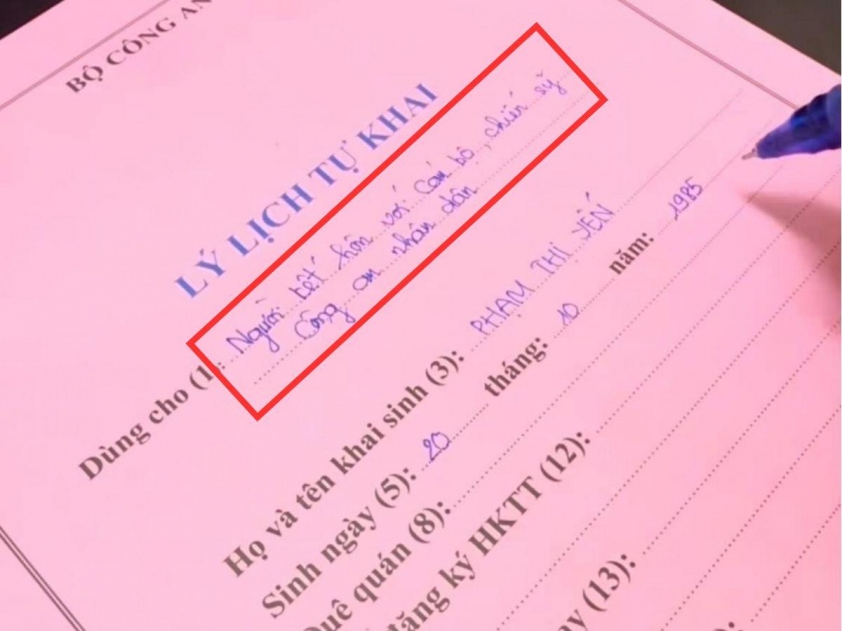 BỘ CÔNG AN
LÝ LỊCH TỰ KHAI
Dùng cho (1): Người kết hôn với cán bộ, chiến sỹ
Công an nhân dân
Họ và tên khai sinh (3): PHẠM THỊ YẾN
Sinh ngày (5): 20 tháng: 10 năm: 1985
Quê quán (8):
đăng ký HKTT (12):
(13):